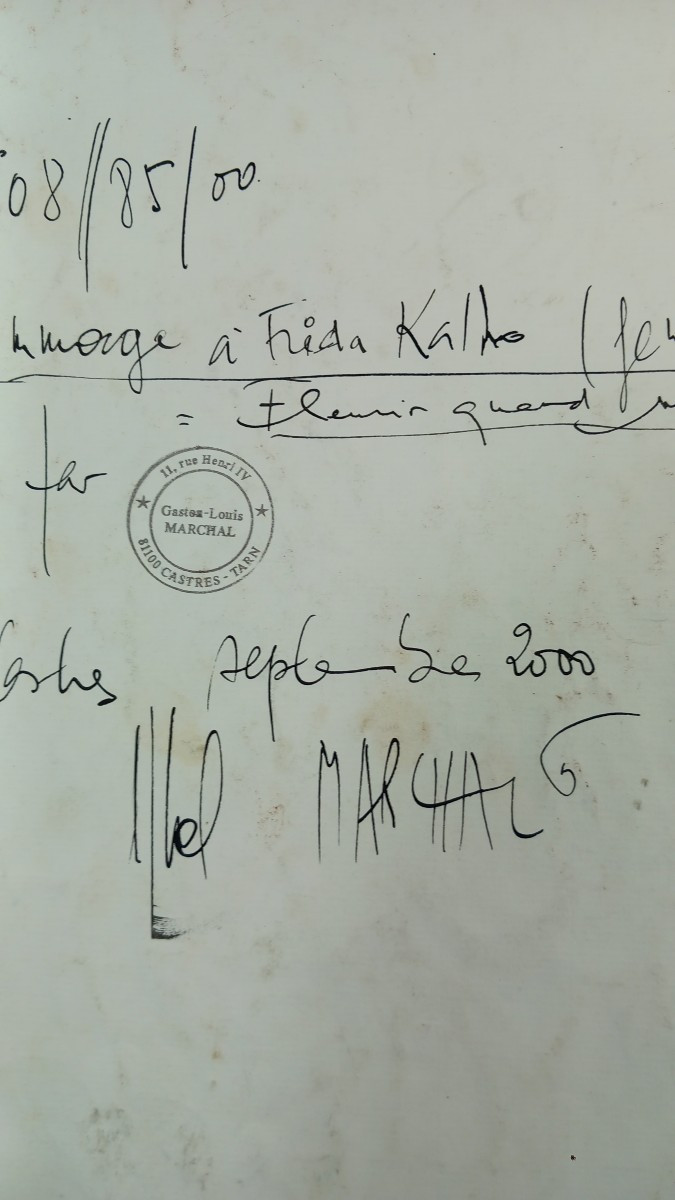 08//85/00.
mmage à Frida Kalho (fem
= Fleurir quand
par
11, rue Henri IV
Gaston-Louis
MARCHAL
81100 CASTRES - TARN
septembre 2000
MARCHAL G